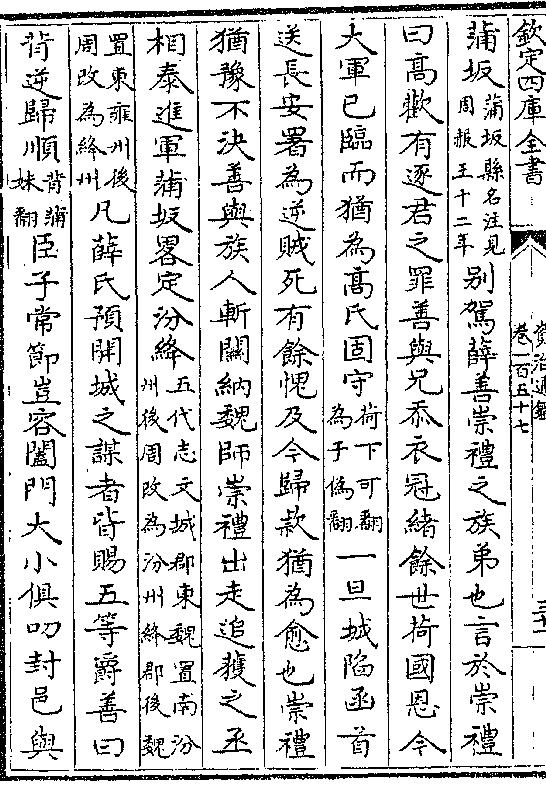 欽定四庫全書
資治通鑑
卷一百五十七
蒲坂蒲坂縣名注見周赧王十二年别駕薛善崇禮之族弟也言於崇禮
曰髙歡有逐君之罪善與兄忝衣冠緒餘世荷國恩今
大軍已臨而猶為髙氏固守荷下可翻為于偽翻一旦城陷函首
送長安署為逆賊死有餘愧及今歸款猶為愈也崇禮
猶豫不決善與族人斬關納魏師崇禮出走追獲之丞
相泰進軍蒲坂畧定汾絳五代志文城郡東魏置南汾州後周改為汾州絳郡後魏
置東雍州後周改為絳州凡薛氏預開城之謀者皆賜五等爵善曰
背逆歸順背蒲妹翻臣子常節豈容闔門大小俱叨封邑與